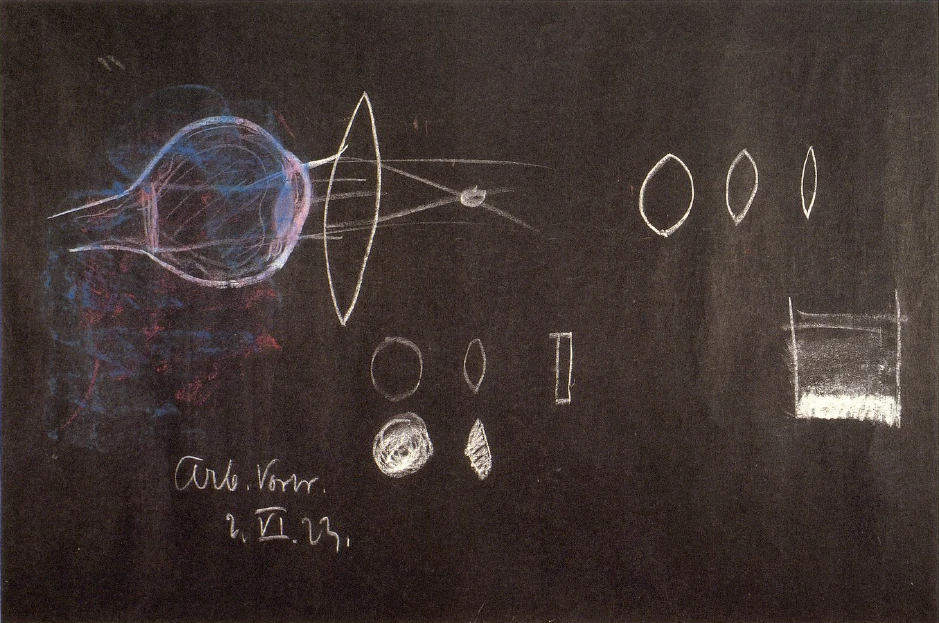 Arb. Vortr.
2. VI. 23.